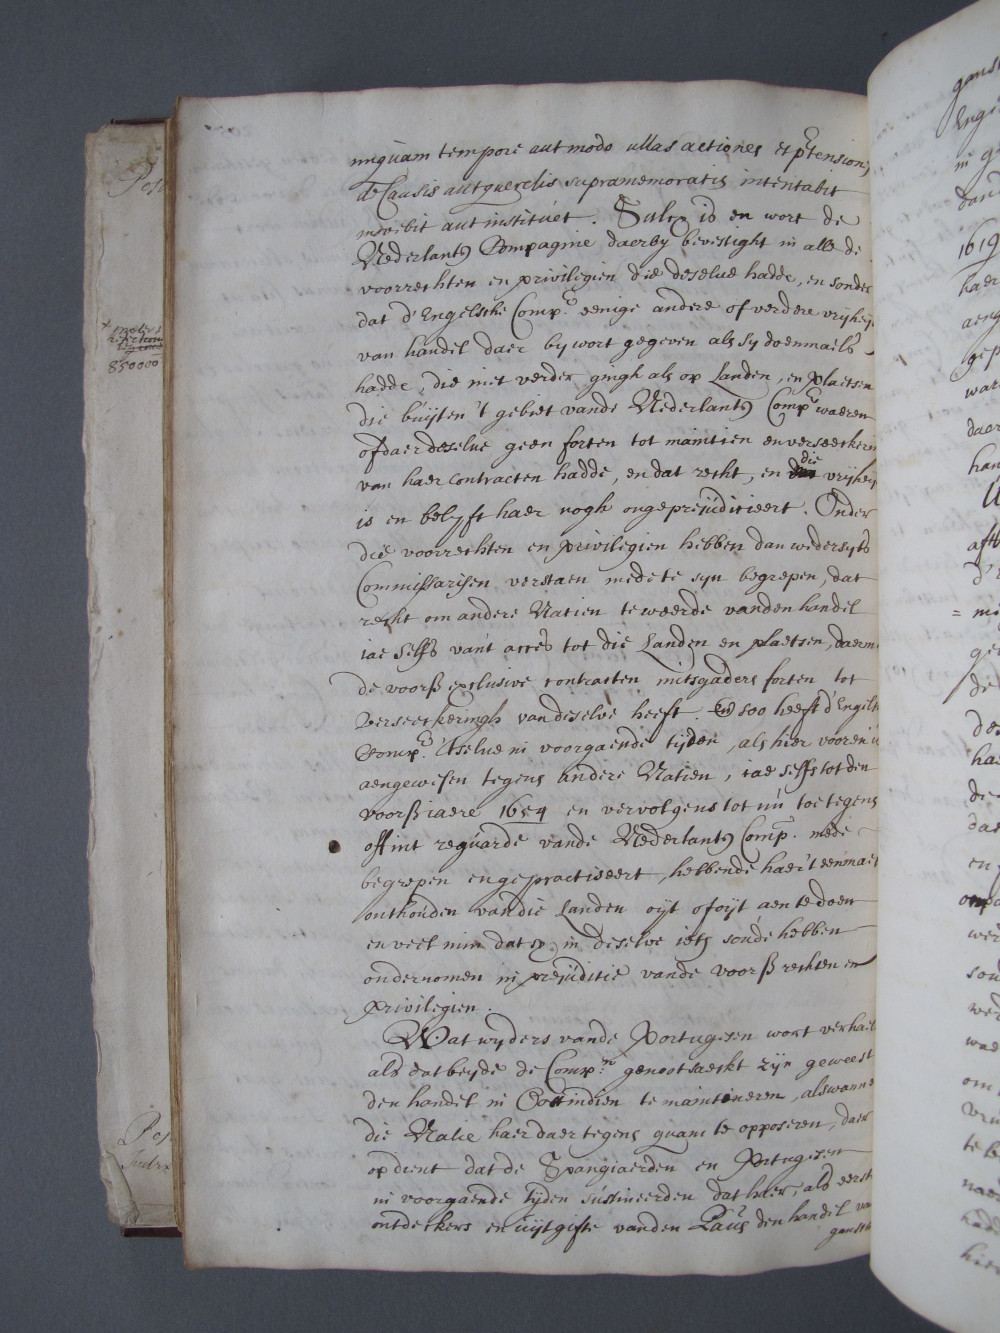 nuquam tempore aut modo ullas actiones et ptension
de Causis aut querelis supramemoratis intentabit
movebit aut instituet. Sulx is en wort de
Nederlants Compagnie daerby bevestight in alle de
voorrechten en privilegien die deselve hadde, en sonder
dat d'Engelsche Comp.e eenige andere of verdere vrijhey
van handel daer by wort gegeven als sy doenmaels
hadde, die niet verder gingh als op Landen, en plaetsen
die buijten 't gebiet vande Nederlants Comp.e waeren
of daer deselve geen forten tot maintien en verseeckerin
van haer contracten hadde, en dat recht, en die vrijhey
is en blyft haer nogh ongeprejudicieert. Onder
die voorrechten en privilegien hebben dan wedersyts
Commissarisen verstaen mede te syn begrepen, dat
recht om andere Natien te weerde vanden handel
iae selfs van't acces tot die Landen en plaetsen, daerme
de voorß exclusive contracten mitsgaders forten tot
verseeckeringh van deselve heeft. En soo heeft d'Engels
Comp.e 'tselve in voorgaende tijden, als hier vooren is
aengewesen tegens andere Natien, iae selfs tot den
voorß iaere 1654 en vervolgens tot nu toe tegens
off int reguarde vande Nederlants Comp. mede
begrepen en gepractiseert, hebbende haer 't eenmael
onthouden van die Landen oijt ofoijt aen te doen
en veel min dat sy in deselve iets soude hebben
ondernomen in prejuditie vande voorß rechten en
privilegien.
Wat wyders vande Portugesen wort verhael
als dat beyde de Comp.n genootsaeckt zijn geweest
den handel in Oostindien te maintineren, alswanne
die Natie haer daer tegens quam te opposeren, daer
op dient dat de Spangiaerden en Portugesen
in voorgaende tijden sustineerden dat haer, als eerste
ontdeckers en uijtgifte vanden Paus den handel van
gansch
Post
x
850000
Pos
Judex
gans
Engl
in g
dan
1619
haer
aeng
gep
ware
daer
han
aff
d'E
= mi
ge
de
des
hae
de
dae
en
wer
son
wer
wae
om
te b
hade
hier